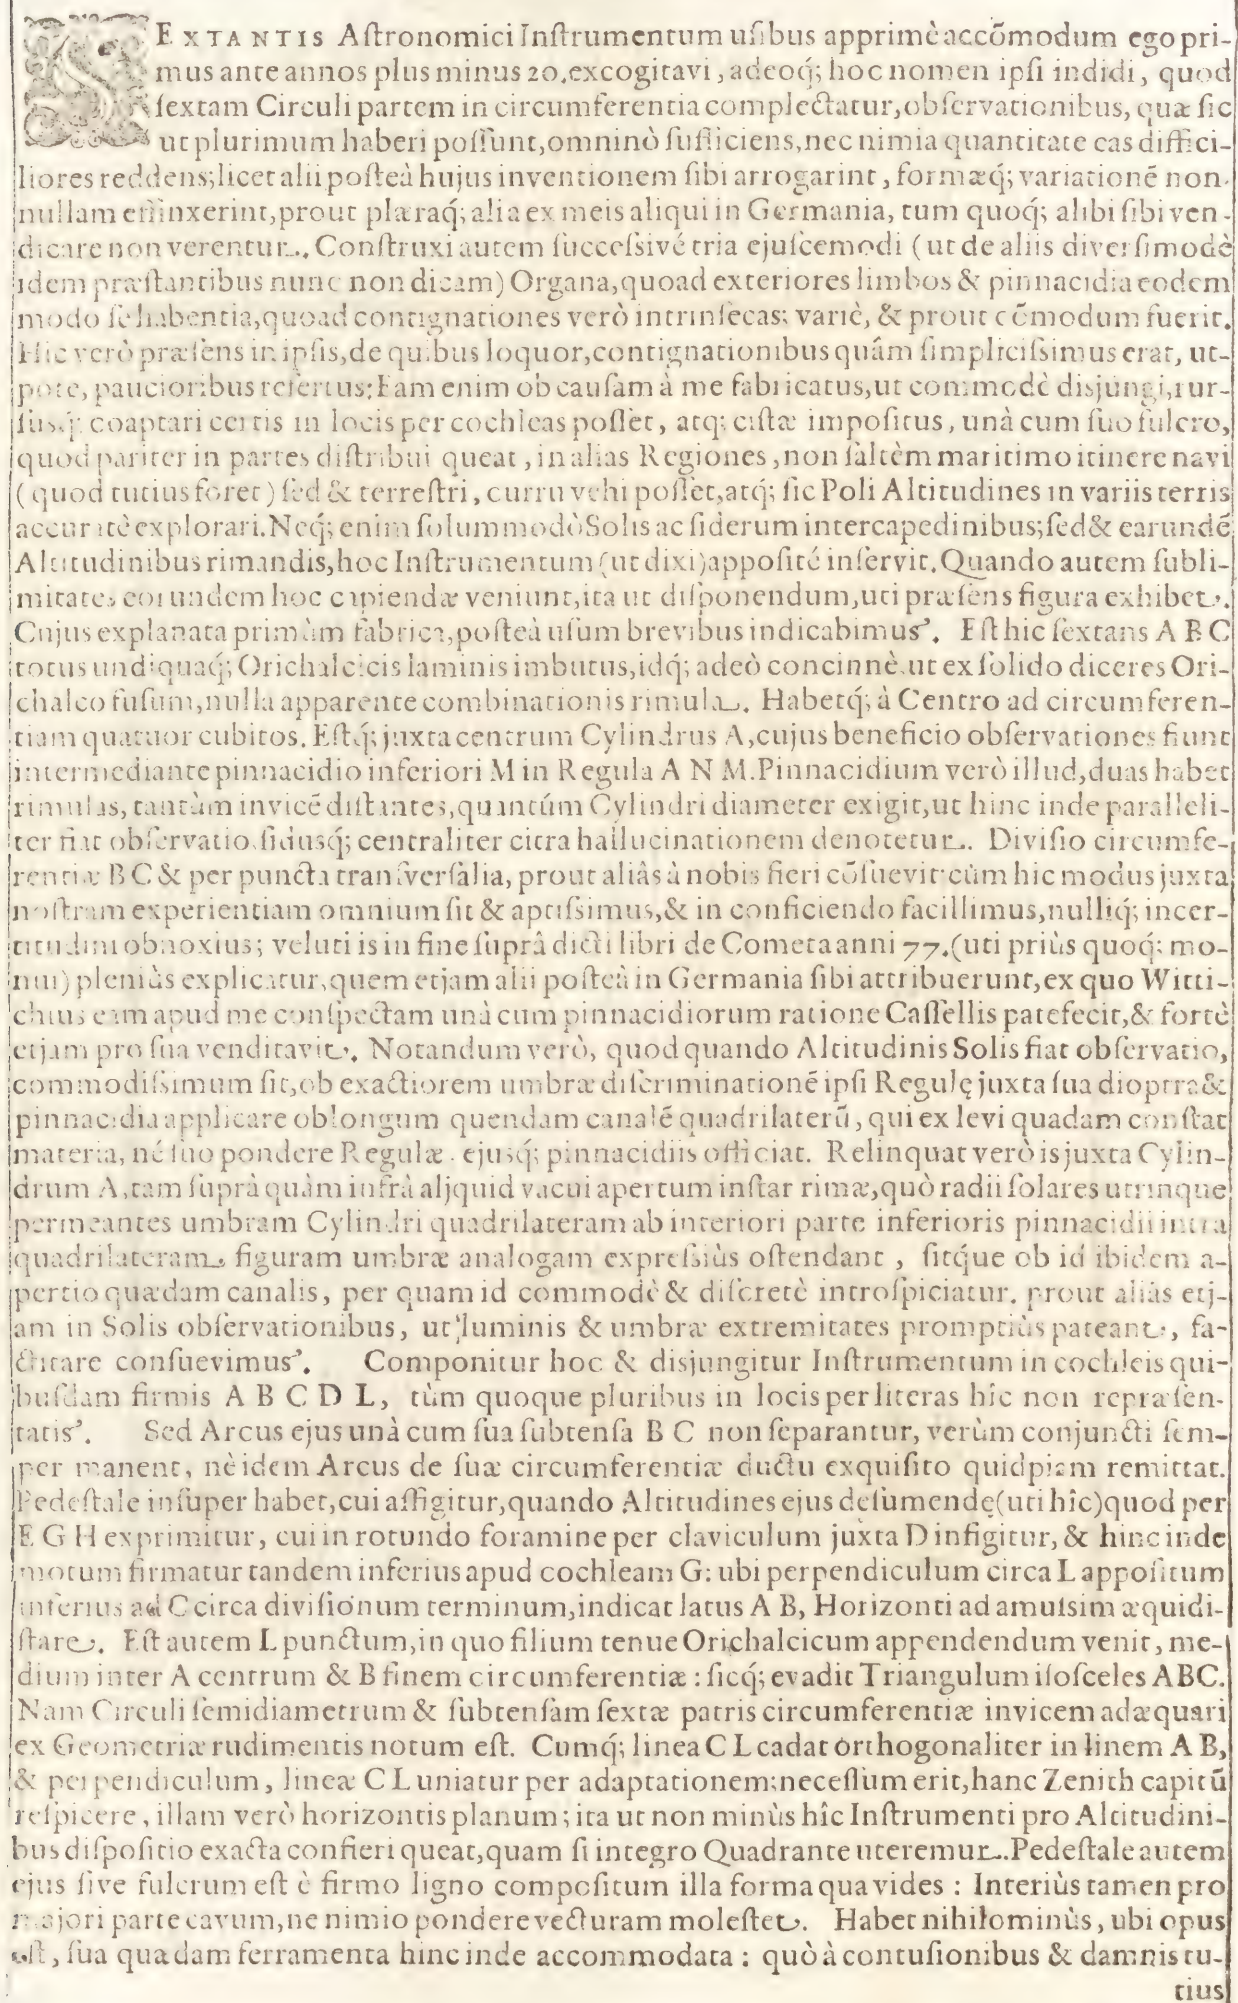 SEXTANTIS Aſtronomici Inſtrumentum uſibus apprimè accōmodum ego pri-
mus ante annos plus minus 20, excogitavi, adeoq́; hoc nomen ipſi indidi, quod
ſextam Circuli partem in circumferentia complectatur, obſervationibus, quæ ſic
ut plurimum haberi poſſunt, omninò ſufficiens, nec nimia quantitate eas diffici-
liores reddens; licet alii poſteà hujus inventionem ſibi arrogarint, formæq́; variationē non-
nullam effinxerint, prout plæraq́; alia ex meis aliqui in Germania, tum quoq́; alibi ſibi ven-
dicare non verentur. Conſtruxi autem ſucceſsivé tria ejuſcemodi (ut de aliis diverſimodè
idem præſtantibus nunc non dicam) Organa, quoad exteriores limbos & pinnacidia eodem
modo ſe habentia, quoad contignationes verò intrinſecas; variè, & prout cōmodum fuerit.
Hic verò præſens in ipſis, de quibus loquor, contignationibus quâm ſimpliciſsimus erat, ut-
pote, paucioribus refertus: Eam enim ob cauſam à me fabricatus, ut commodè disjungi, rur-
ſusq́; coaptari certis in locis per cochleas poſſet, atq́; ciſtæ impoſitus, unà cum ſuo fulcro,
quod pariter in partes diſtribui queat, in alias Regiones, non ſaltèm maritimo itinere navi
(quod tutius foret) ſed & terreſtri, curru vehi poſſet, atq́; ſic Poli Altitudines in variis terris
accuratè explorari. Neq́; enim ſolummodò Solis ac ſiderum intercapedinibus; ſed & earundē
Altitudinibus rimandis, hoc Inſtrumentum (ut dixi) appoſité inſervit. Quando autem ſubli-
mitates eorundem hoc cipiendæ veniunt, ita ut diſponendum, uti præſens figura exhibet.
Cujus explanata primùm fabrica, poſteà uſum brevibus indicabimus. Eſt hic ſextans A B C
totus undiquaq́; Orichalcicis laminis imbutus, idq́; adeò concinnè, ut ex ſolido diceres Ori-
chalco fuſum, nulla apparente combinationis rimula. Habetq́; à Centro ad circumferen-
tiam quatuor cubitos. Eſtq́; juxta centrum Cylindrus A, cujus beneficio obſervationes fiunt
intermediante pinnacidio inferiori M in Regula A N M. Pinnacidium verò illud, duas habet
rimulas, tantùm invicē diſtantes, quantúm Cylindri diameter exigit, ut hinc inde paralleli-
ter fiat obſervatio, ſidusq́; centraliter citra hallucinationem denotetur. Diviſio circumfe-
rentiæ B C & per puncta tranſverſalia, prout aliâs à nobis fieri cōſuevit: cùm hic modus juxta
noſtram experientiam omnium ſit & aptiſsimus, & in conficiendo facillimus, nulliq́; incer-
titudini obnoxius; veluti is in fine ſuprâ dicti libri de Cometa anni 77. (uti priùs quoq́; mo-
nui) pleniùs explicatur, quem etjam alii poſteà in Germania ſibi attribuerunt, ex quo Witti-
chius eam apud me conſpectam unà cum pinnacidiorum ratione Caſſellis patefecit, & fortè
etjam pro ſua venditavit. Notandum verò, quod quando Altitudinis Solis fiat obſervatio,
commodiſsimum ſit, ob exactiorem umbræ diſcriminationē ipſi Regulę juxta ſua dioptra &
pinnacidia applicare oblongum quendam canalē quadrilaterū, qui ex levi quadam conſtat
materia, né ſuo pondere Regulæ ejusq́; pinnacidiis officiat. Relinquat verò is juxta Cylin-
drum A, tam ſuprà quàm infrà aljquid vacui apertum inſtar rimæ, quò radii ſolares utrinque
permeantes umbram Cylindri quadrilateram ab interiori parte inferioris pinnacidii intra
quadrilateram figuram umbræ analogam expreſsiùs oſtendant, ſitq́ue ob id ibidem a-
pertio quædam canalis, per quam id commodè & diſcretè introſpiciatur, prout aliàs etj-
am in Solis obſervationibus, ut luminis & umbræ extremitates promptiùs pateant, fa-
ctitare conſuevimus. Componitur hoc & disjungitur Inſtrumentum in cochleis qui-
buſdam firmis A B C D L, tùm quoque pluribus in locis per literas hîc non repræſen-
tatis. Sed Arcus ejus unà cum ſua ſubtenſa B C non ſeparantur, verùm conjuncti ſem-
per manent, nè idem Arcus de ſuæ circumferentiæ ductu exquiſito quidpiam remittat.
Pedeſtale inſuper habet, cui affigitur, quando Altitudines ejus deſumendę (uti hîc) quod per
E G H exprimitur, cui in rotundo foramine per claviculum juxta D infigitur, & hinc inde
motum firmatur tandem inferius apud cochleam G: ubi perpendiculum circa L appoſitum
inferius ad C circa diviſionum terminum, indicat latus A B, Horizonti ad amuſsim æquidi-
ſtare. Eſt autem L punctum, in quo filium tenue Orichalcicum appendendum venit, me-
dium inter A centrum & B finem circumferentiæ: ſicq́; evadit Triangulum iſoſceles ABC.
Nam Circuli ſemidiametrum & ſubtenſam ſextæ patris circumferentiæ invicem adæquari
ex Geometriæ rudimentis notum eſt. Cumq́; linea C L cadat orthogonaliter in linem A B,
& perpendiculum, lineæ C L uniatur per adaptationem; neceſſum erit, hanc Zenith capitū
reſpicere, illam verò horizontis planum; ita ut non minùs hîc Inſtrumenti pro Altitudini-
bus diſpoſitio exacta confieri queat, quam ſi integro Quadrante uteremur. Pedeſtale autem
ejus ſive fulcrum eſt è firmo ligno compoſitum illa forma qua vides: Interiùs tamen pro
majori parte cavum, ne nimio pondere vecturam moleſtet. Habet nihilominùs, ubi opus
eſt, ſua quadam ferramenta hinc inde accommodata: quò à contuſionibus & damnis tu-
tius